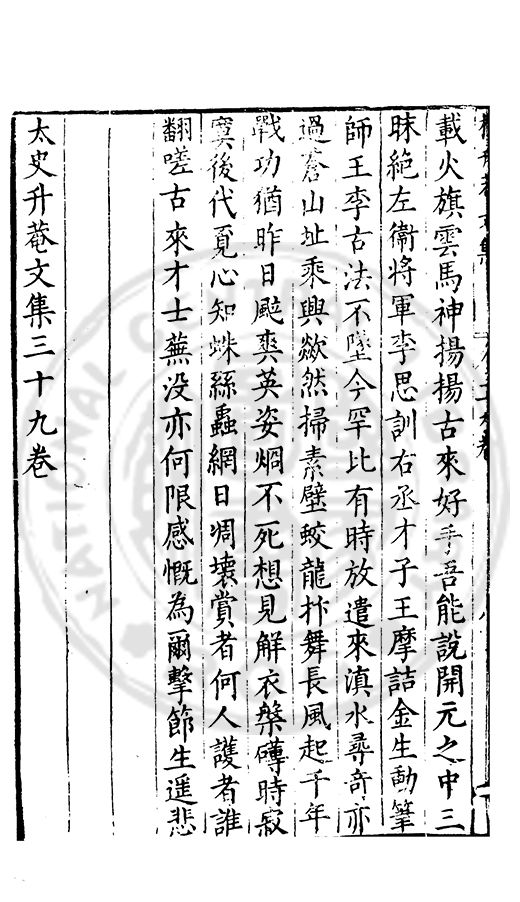 載火旗雲馬神揚揚古來好手吾能說開元之中三
昧絶左衞將軍李思訓右丞才子王摩詰金生動筆
師王李古法不墜今罕比有時放遣來滇水尋奇亦
過蒼山址乘興歘然掃素壁蛟龍抃舞長風起千年
戰功猶昨日颯爽英姿烱不死想見解衣槃礴時寂
寞後代覔心知蛛絲蟲網日凋壞賞者何人護者誰
翻嗟古來才士蕪没亦何限感慨為爾擊節生遥悲
太史升菴文集三十九卷